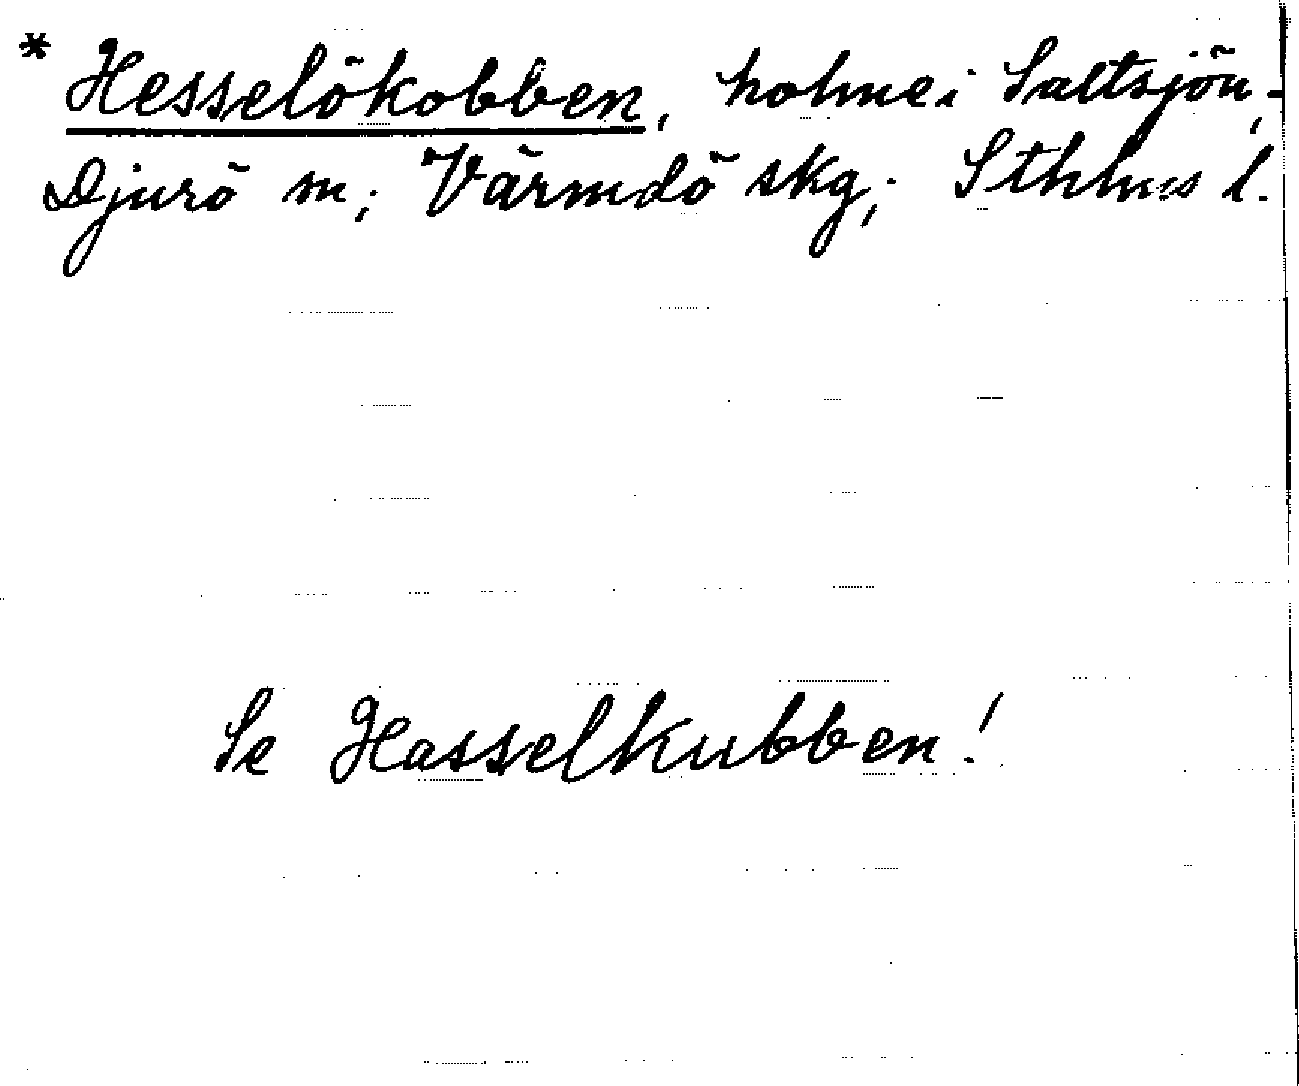 * Hesselökobben, holme i Saltsjön,
Djurö sn; Värmdö skg; Sthlms l.
Se Hasselkubben!